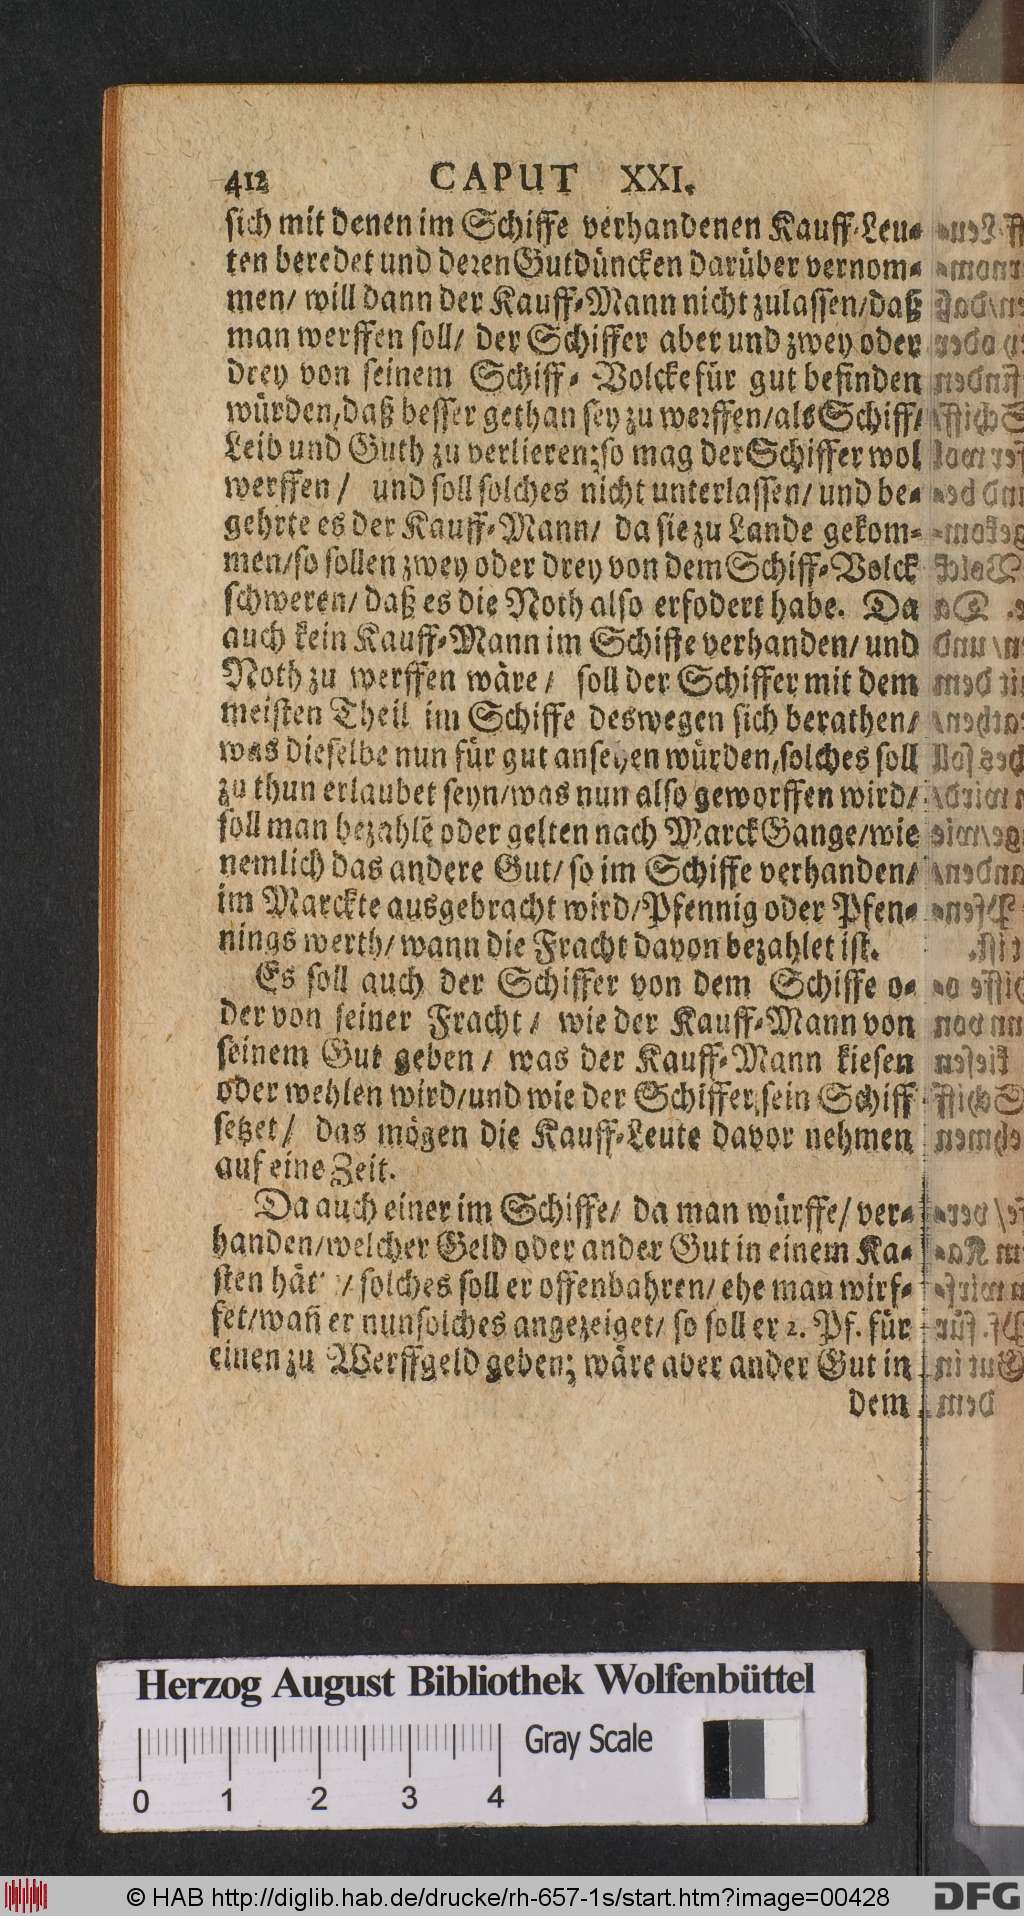 412 CAPUT XXI.
sich mit denen im Schiffe verhandenen Kauff-Leu-
ten beredet und deren Gutdüncken darüber vernom-
men/ will dann der Kauff-Mann nicht zulassen/daß
man werffen soll/ der Schiffer aber und zwey oder
drey von seinem Schiff- Volcke für gut befinden
würden/daß besser gethan sey zu werffen/als Schiff/
Leib und Guth zu verlieren; so mag der Schiffer wol
werffen / und soll solches nicht unterlassen/ und be-
gehrte es der Kauff-Mann/ da sie zu Lande gekom-
men/so sollen zwey oder drey von dem Schiff-Volck
schweren/ daß es die Noth also erfodert habe. Da
auch kein Kauff-Mann im Schiffe verhanden/ und
Noth zu werffen wäre / soll der Schiffer mit dem
meisten Theil im Schiffe deswegen sich berathen/
was dieselbe nun für gut ansehen würden/solches soll
zu thun erlaubet seyn/was nun also geworffen wird/
soll man bezahlē oder gelten nach Marck Gange/wie
nemlich das andere Gut/ so im Schiffe verhanden/
im Marckte ausgebracht wird/Pfennig oder Pfen-
nings werth/ wann die Fracht davon bezahlet ist.
Es soll auch der Schiffer von dem Schiffe o-
der von seiner Fracht / wie der Kauff-Mann von
seinem Gut geben / was der Kauff-Mann kiesen
oder wehlen wird/und wie der Schiffer sein Schiff
setzet / das mögen die Kauff-Leute davor nehmen
auf eine Zeit.
Da auch einer im Schiffe/ da man würffe/ ver-
handen/welcher Geld oder ander Gut in einem Ka-
sten hät /solches soll er offenbahren/ ehe man wirf-
fet/wañ er nun solches angezeiget/ so soll er 2. Pf. für
einen zu Werffgeld geben; wäre aber ander Gut in
dem
Herzog August Bibliothek Wolfenbüttel
Gray Scale
0 1 2 3 4
© HAB http://diglib.hab.de/drucke/rh-657-1s/start.htm?image=00428 DFG